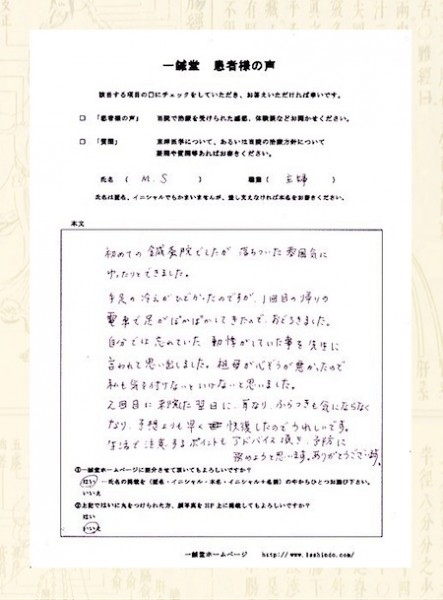 一鍼堂 患者様の声
該当する項目の□にチェックをしていただき、お答えいただければ幸いです。
□ 「患者様の声」 当院で治療を受けられた感想、体験談などお聞かせください。
□ 「質問」 東洋医学について、あるいは当院の治療方針について
疑問や質問等あればお書きください。
氏名 ( M.S ) 職業 ( 主婦 )
氏名は匿名、イニシャルでもかまいませんが、差し支えなければ本名をお書きください。
本文
初めての鍼灸院でしたが 落ちついた雰囲気に
ゆったりとできました。
手足の冷えがひどかったのですが、1回目の帰りの
電車で足がぽかぽかしてきたので、おどろきました。
自分では忘れていた動悸がしていた事を先生に
言われて思い出しました。祖母が心ぞうが悪かったので
私も気を付けないといけないと思いました。
2回目に来院た翌日に、耳なり、ふらつきも気にならなく
なり、予想よりも早く快復したのでうれしいです。
生活で注意するポイントもアドバイス頂き、予防に
努めようと思います。ありがとうございます。
①一鍼堂ホームページに紹介させて頂いてもよろしいですか？
はい →氏名の掲載を（匿名・イニシャル・本名・イニシャル＋名前）の中からひとつお選び下さい。
いいえ
②上記ではいに丸をつけられた方、顔写真をHP上に掲載してもよろしいですか？
はい
いいえ
一鍼堂ホームページ http://www.isshindo.com/